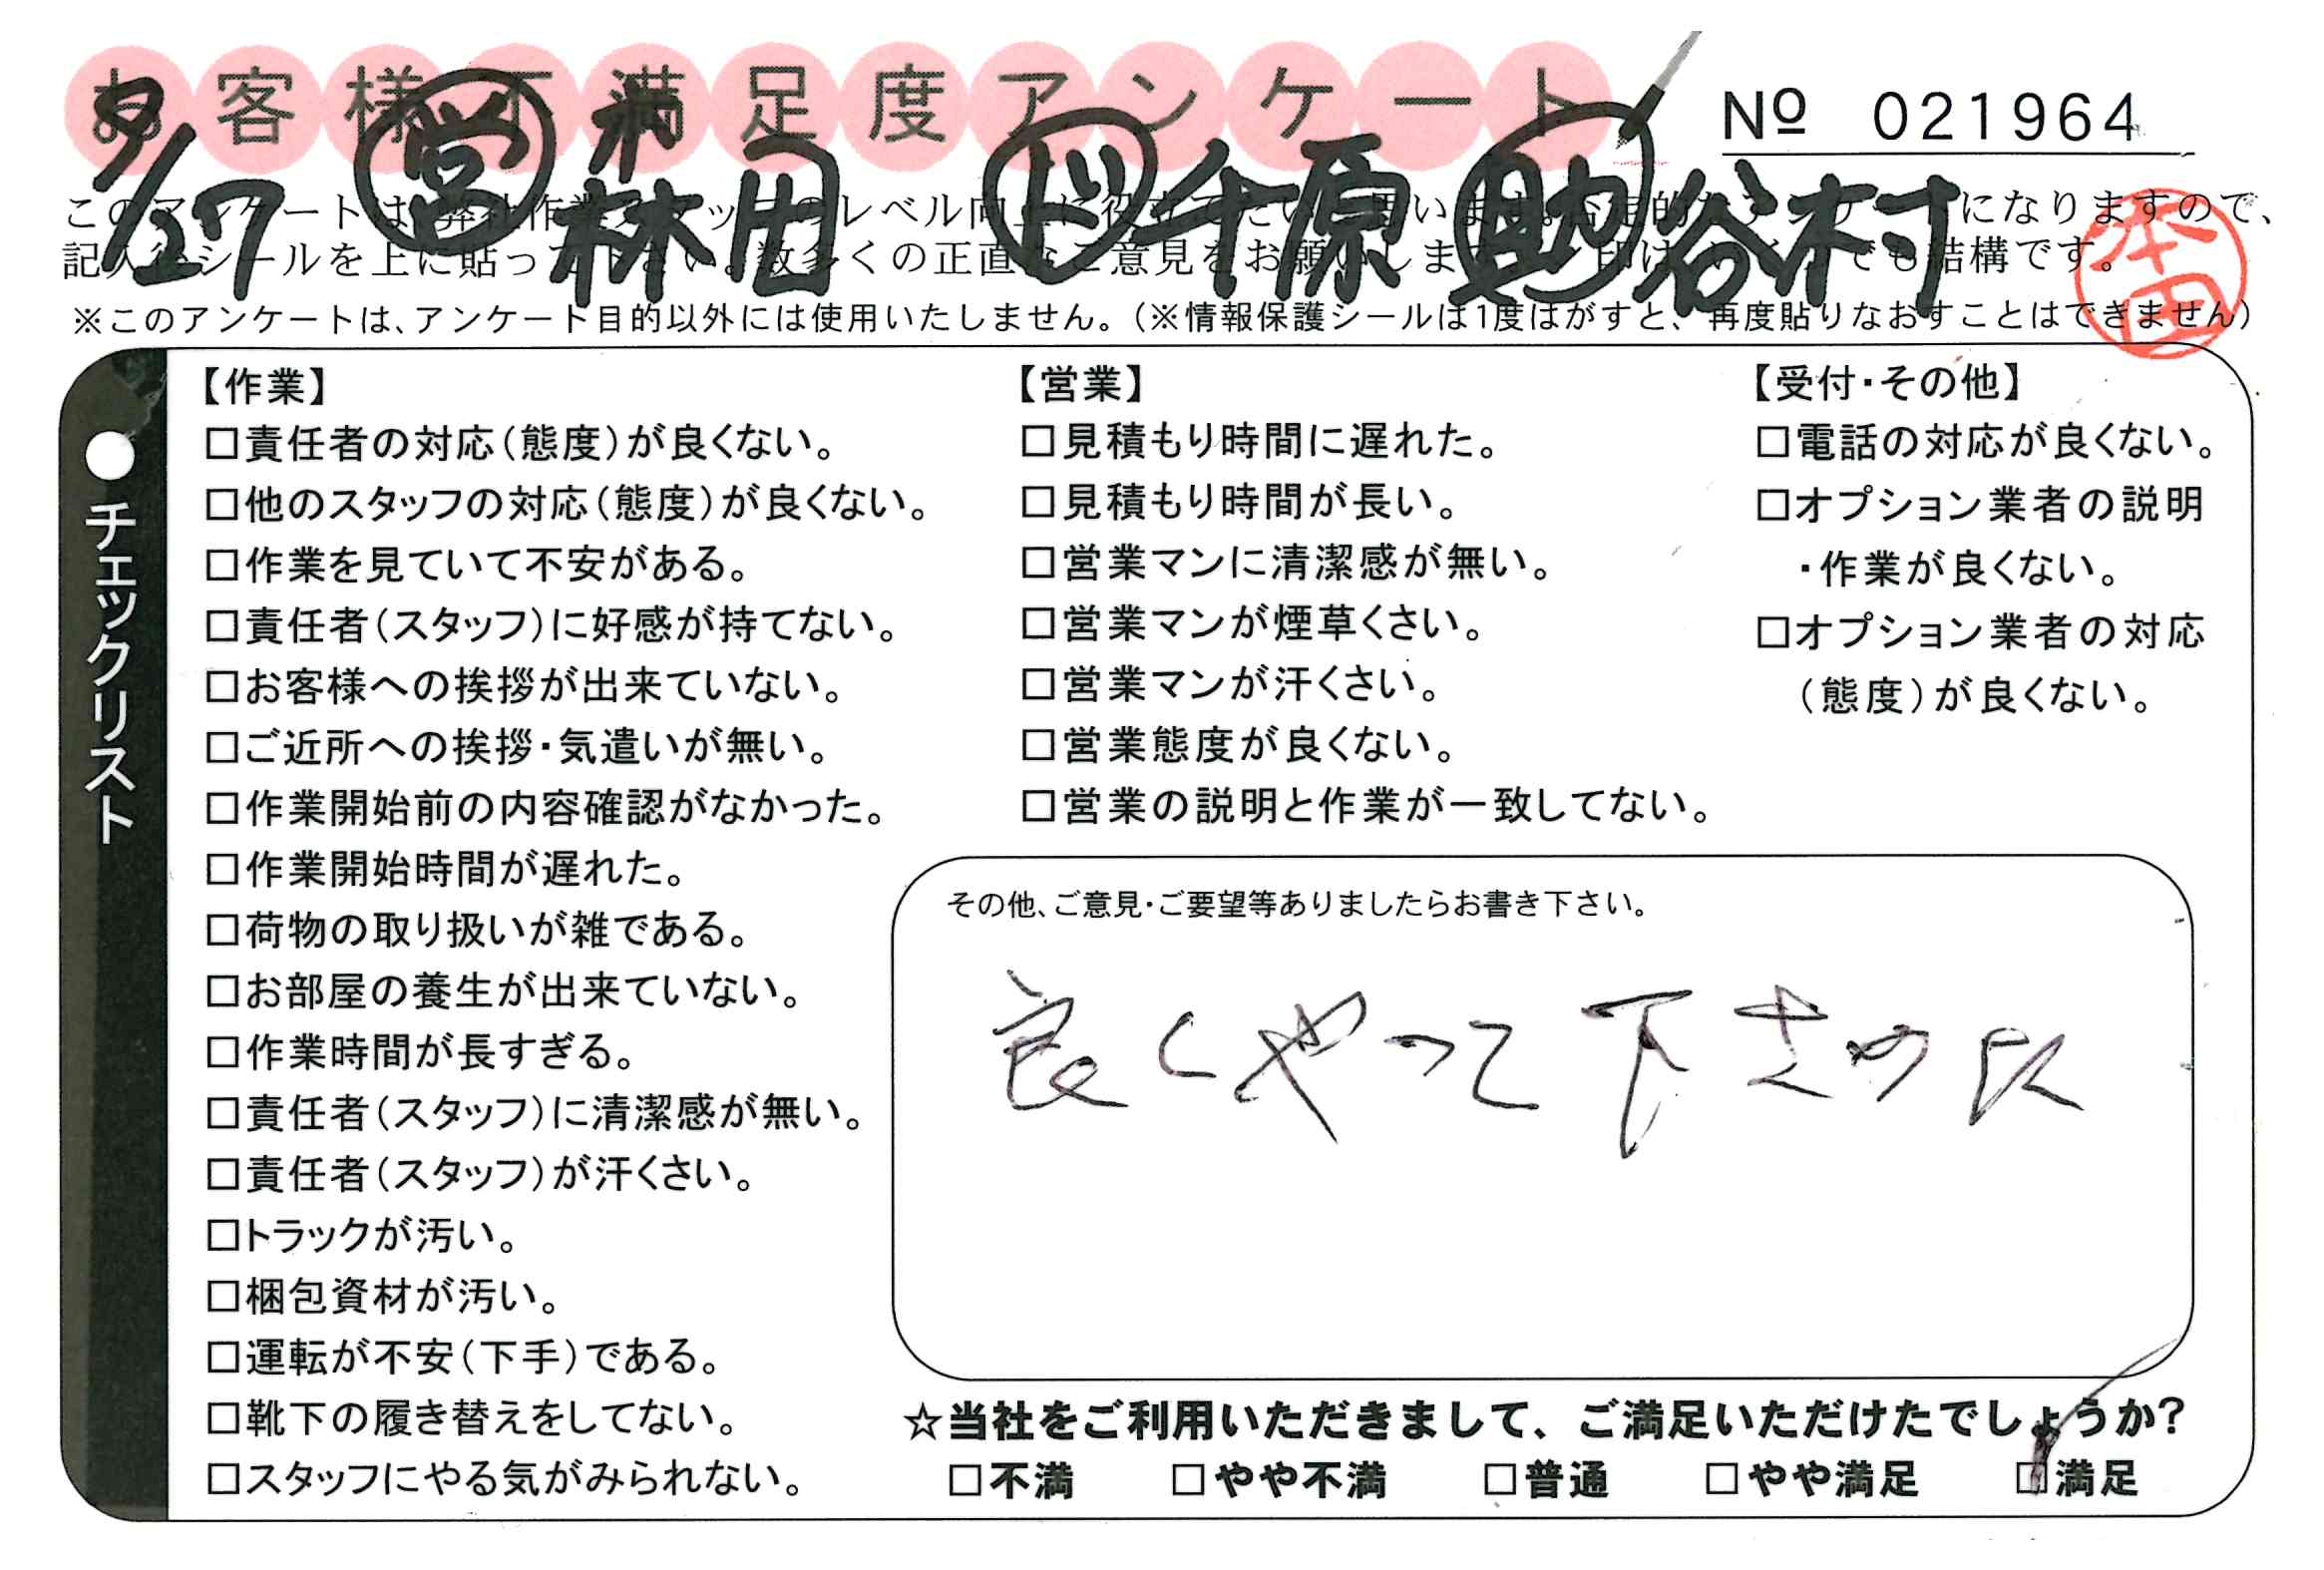 お客様不満足度アンケート
№ 021964
9/27 営 林田 ド 千原 助 谷村
本田
このアンケートは、弊社作業スタッフのレベル向上に役立てたいと思います。否定的なアンケートになりますので、
記入後シールを上に貼って下さい。数多くの正直なご意見をお願いします。
でも結構です。
※このアンケートは、アンケート目的以外には使用いたしません。（※情報保護シールは1度はがすと、再度貼りなおすことはできません）
●チェックリスト
【作業】
□責任者の対応（態度）が良くない。
□他のスタッフの対応（態度）が良くない。
□作業を見ていて不安がある。
□責任者（スタッフ）に好感が持てない。
□お客様への挨拶が出来ていない。
□ご近所への挨拶・気遣いが無い。
□作業開始前の内容確認がなかった。
□作業開始時間が遅れた。
□荷物の取り扱いが雑である。
□お部屋の養生が出来ていない。
□作業時間が長すぎる。
□責任者（スタッフ）に清潔感が無い。
□責任者（スタッフ）が汗くさい。
□トラックが汚い。
□梱包資材が汚い。
□運転が不安（下手）である。
□靴下の履き替えをしてない。
□スタッフにやる気がみられない。
【営業】
□見積もり時間に遅れた。
□見積もり時間が長い。
□営業マンに清潔感が無い。
□営業マンが煙草くさい。
□営業マンが汗くさい。
□営業態度が良くない。
□営業の説明と作業が一致してない。
【受付・その他】
□電話の対応が良くない。
□オプション業者の説明
・作業が良くない。
□オプション業者の対応
（態度）が良くない。
その他、ご意見・ご要望等ありましたらお書き下さい。
良くやって下さ
☆当社をご利用いただきまして、ご満足いただけたでしょうか?
□不満 □やや不満 □普通 □やや満足 □満足